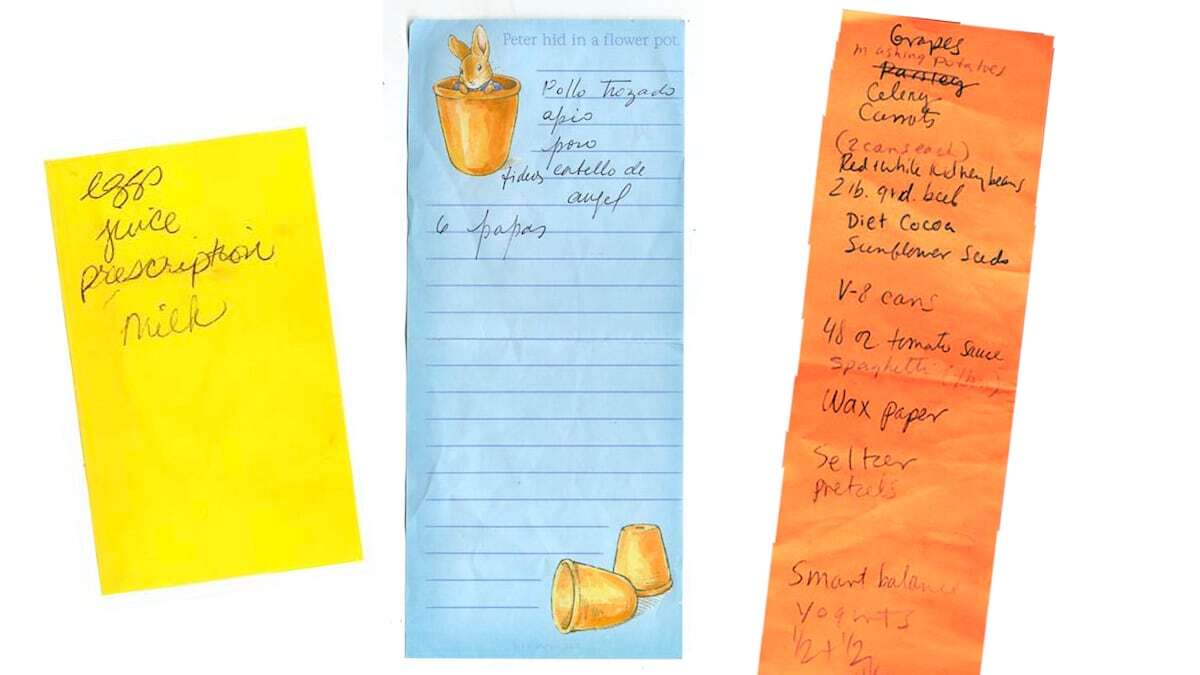 eggs
juice
prescription
milk
Peter hid in a flower pot.
Pollo trozado
apio
poro
fideos cabello de
angel
6 papas
Grapes
mashing potatoes
Parsley
Celery
Carrots
(2 cans each)
Red + white kidney beans
2 lb. grd. beef
Diet Cocoa
Sunflower Seeds
V-8 cans
48 oz tomato sauce
spaghetti (thin)
Wax paper
Seltzer
pretzels
Smart balance
Yogurts
1/2 + 1/2